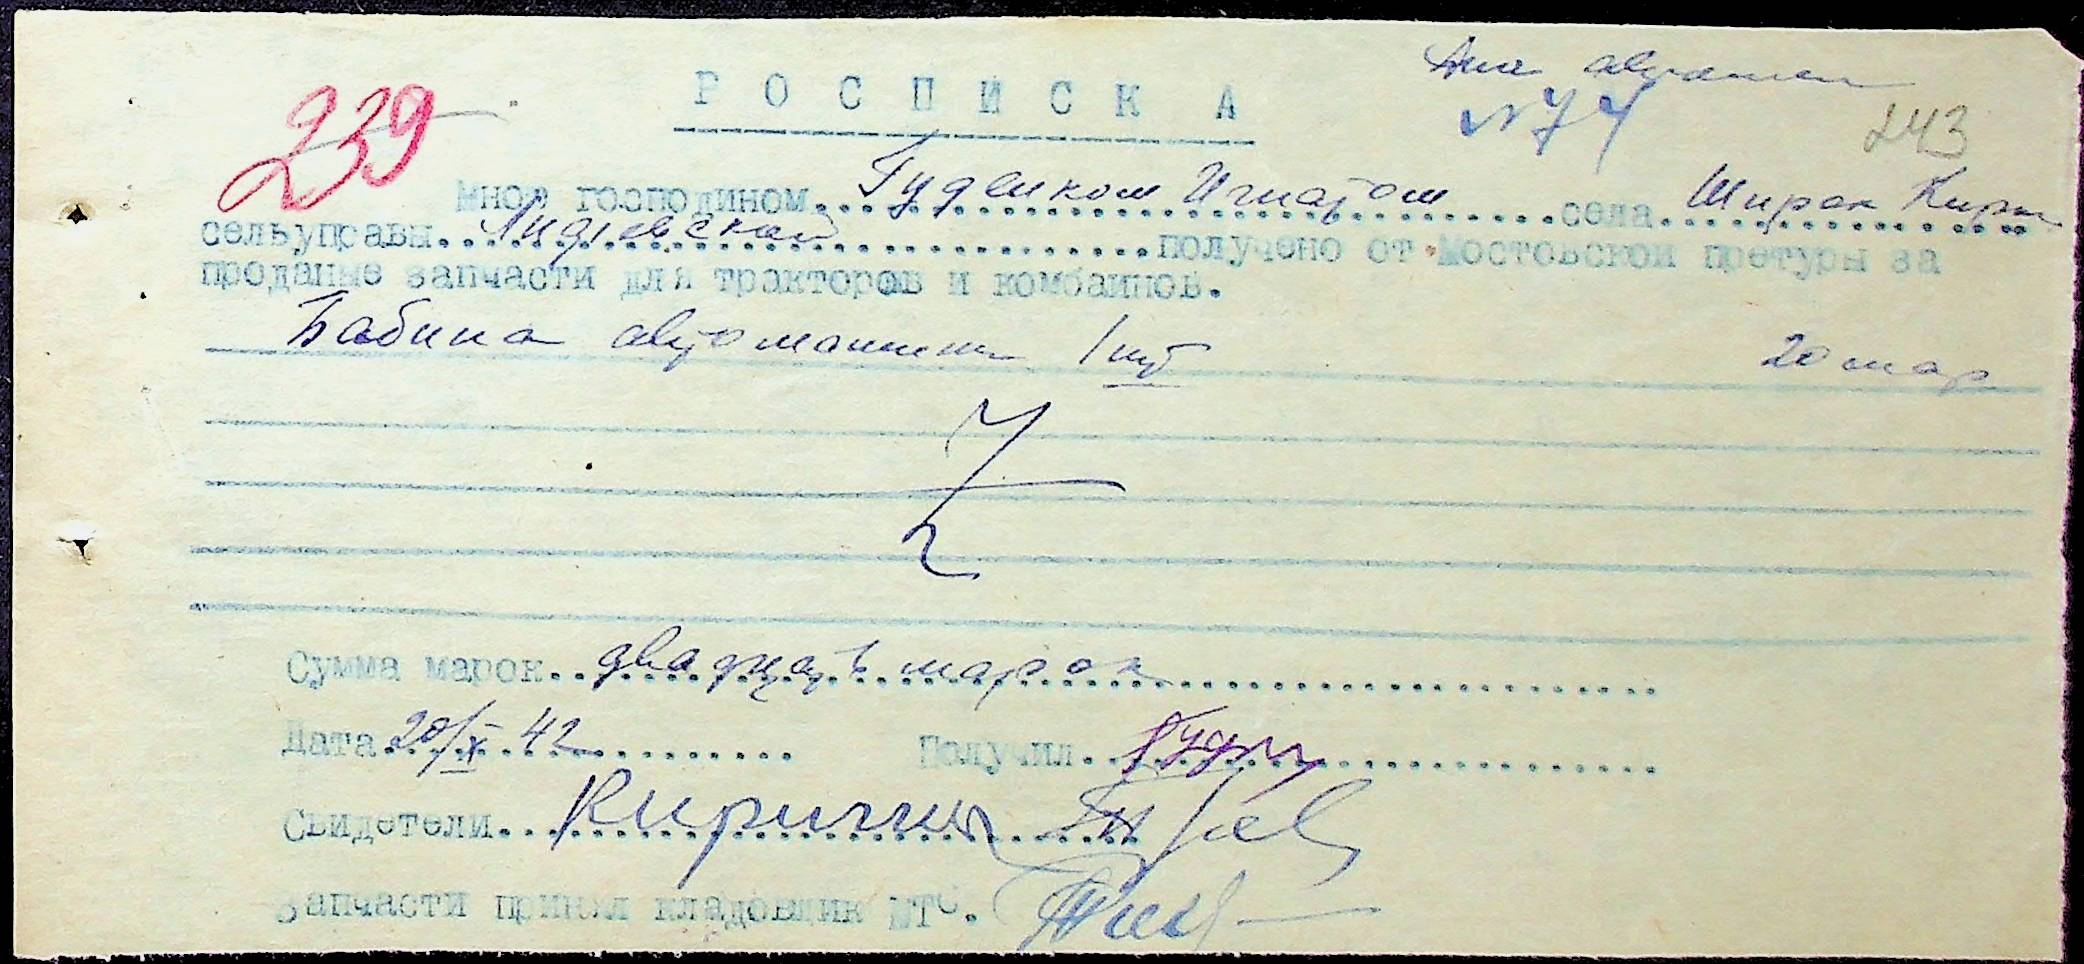 239
Р О С П И С К А
№ 74
243
Мною господином Гуденком Игнатом села Широк
сельуправы Лидиевской получено от Мостовской претуры за
проданые запчасти для тракторов и комбайнов.
Бабина 1 шт 20 мар
Сумма марок двадцать марок
Дата 20/X 42 Получил
Свидетели
Запчасти принял кладовщик МТС.